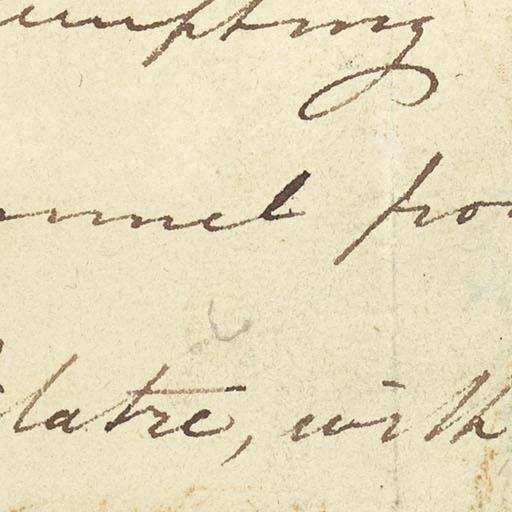 umpting
nnel fro
latre, with